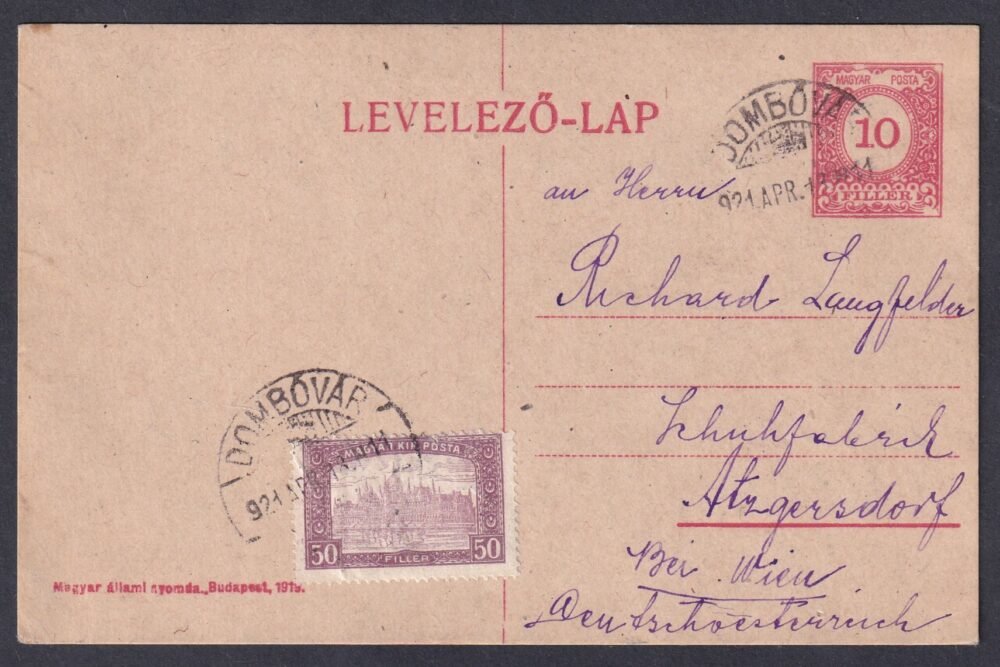 LEVELEZŐ-LAP
MAGYAR POSTA
10
FILLER
DOMBÓVÁR
921.APR.13
an Herrn
Richard Langfelder
Schuhfabrik
Atzgersdorf
Bei Wien
Deutschoesterreich
DOMBÓVÁR
921.APR.13
MAGYAR KIR. POSTA
50 FILLÉR 50
Magyar állami nyomda., Budapest, 1919.